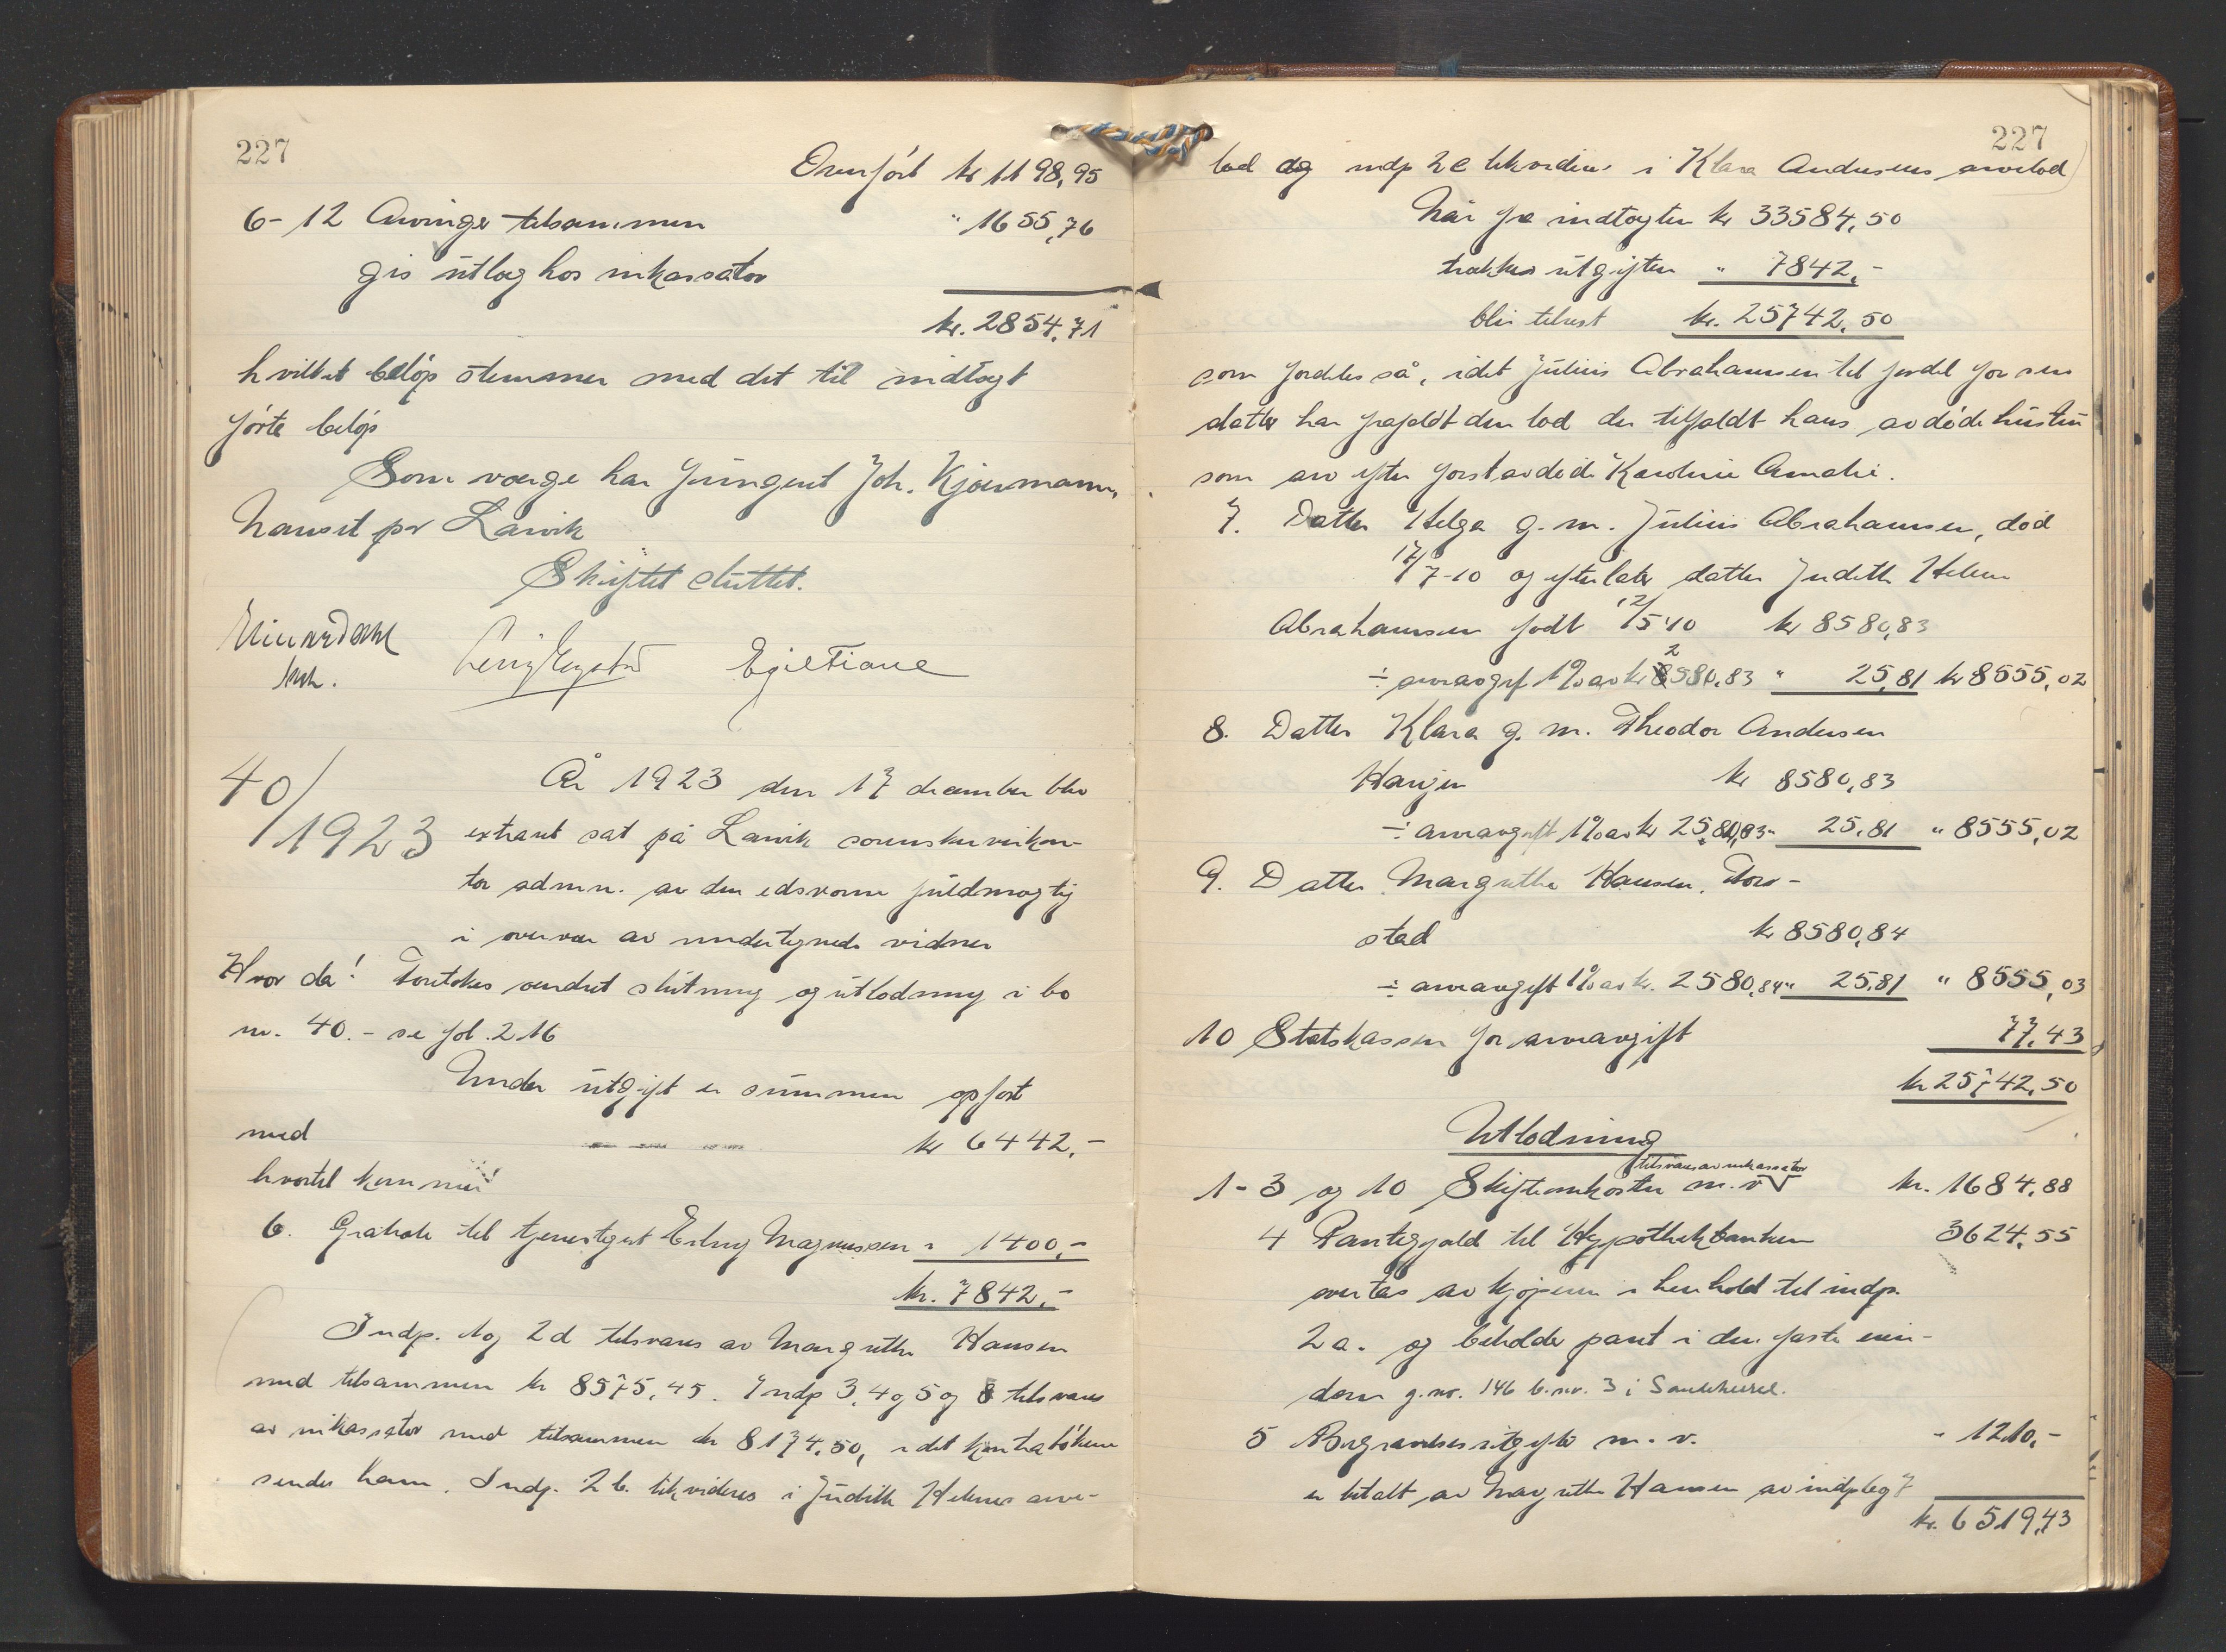 227
Overført kr 1198,95
6-12 Arvinger tilsammen " 1655,76
gis utlæg hos inkassator
kr. 2854,71
hvilket beløp stemmer med det til indtægt
førte beløp
Som værge har fungert Joh. Kjærmann,
Nanset pr Larvik
Skiftet sluttet.
Egil Fiane
40/1923
År 1923 den 17 december blev
extraret sat på Larvik sorenskriverkon-
tor admin. av den edsvorne fuldmægtig
i overvær av undertegnede vidner
Hvor da! Foretokes ændret slutning og utlodning i bo
nr. 40. - se fol. 216
Under utgift er summen opført
med kr 6442,-
hvortil kommer
6. Gratiale til tjenestegut Erling Magnussen " 1400,-
kr. 7842,-
Indp. 1 og 2d tilsvares av Margrethe Hansen
med tilsammen kr 8575,45. Indp 3, 4 og 5 og 8 tilsvares
av inkassator med tilsammen kr 8174,50, idet kontrabøkene
sendes ham. Indp. 2 b. likvideres i Judith Helenes arve-
227
lod og indp 2c likvideres i Klara Andersens arvelod
Når fra indtægten kr 33584,50
trækkes utgiften " 7842,-
blir tilrest kr. 25742,50
som fordeles så, idet Julius Abrahamsen til fordel for sin
datter har frafaldt den lod der tilfaldt hans avdøde hustru
som arv efter førstavdøde Karoline Amalie.
7. Datter Helga g. m. Julius Abrahamsen, død
17/7-10 og efterlater datter Judith Helene
Abrahamsen født 12/5 10 kr 8580,83
÷ arveavgift 1% av kr 2580,83 " 25,81 kr 8555,02
8. Datter Klara g. m. Theodor Andersen
Havjen kr 8580,83
÷ arveavgift 1% av kr 2580,83 " 25,81 " 8555,02
9. Datter Margrethe Hansen, Tors-
stad kr 8580,84
÷ arveavgift 1% av kr. 2580,84 " 25,81 " 8555,03
10 Statskassen for arveavgift 77,43
kr 25742,50
Utlodning
tilsvares av inkassator
1-3 og 10 Skifteomkoster m. v kr. 1684,88
4 Pantegjæld til Hypothekbanken 3624,55
overtas av kjøperen i henhold til indp.
2a. og beholder pant i den faste eien-
dom g.nr. 146 b.nr. 3 i
5 Begravelsesutgifter m. v. " 1210,-
er betalt av Margrethe Hansen av indp
kr. 6519,43